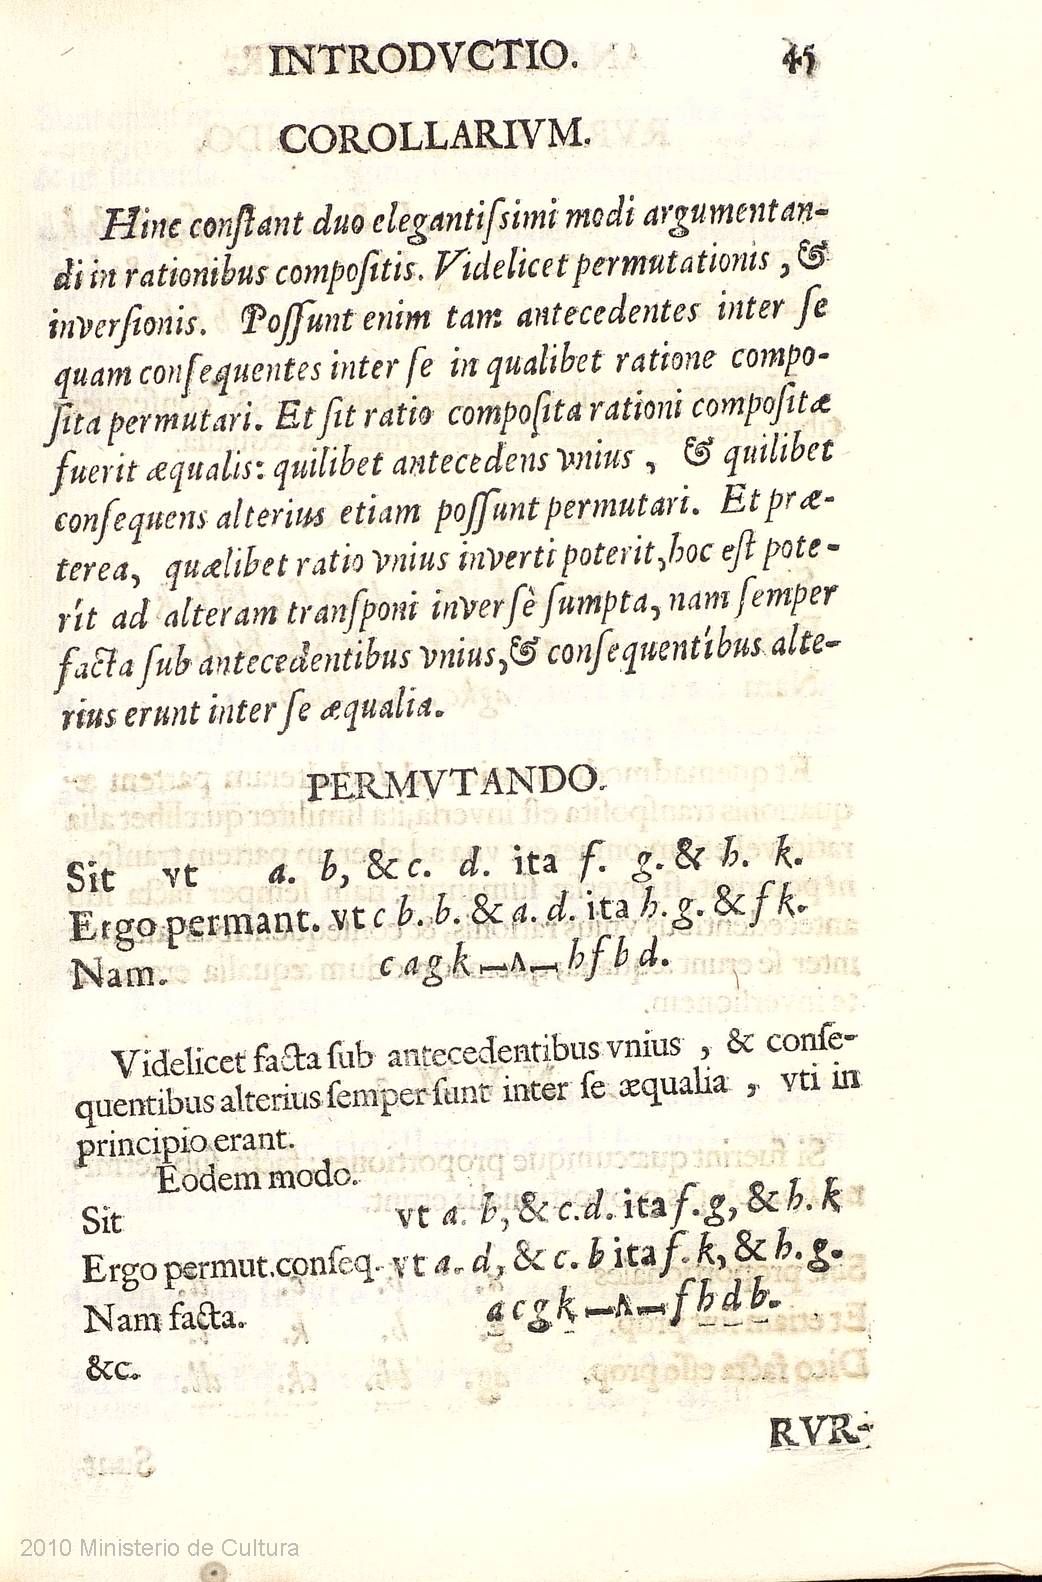 INTRODVCTIO. 45
COROLLARIVM.
Hinc conſtant duo elegantiſsimi modi argumentan-
di in rationibus compoſitis. Videlicet permutationis, &
inverſionis. Poſſunt enim tam antecedentes inter ſe
quam conſequentes inter ſe in qualibet ratione compo-
ſita permutari. Et ſit ratio compoſita rationi compoſitæ
fuerit æqualis: quilibet antecedens vnius, & quilibet
conſequens alterius etiam poſſunt permutari. Et præ-
terea, quælibet ratio vnius inverti poterit, hoc eſt pote-
rít ad alteram tranſponi inverſè ſumpta, nam ſemper
facta ſub antecedentibus vnius, & conſequentíbus alte-
rius erunt inter ſe æqualia.
PERMVTANDO.
Sit vt a. b, & c. d. ita f. g. & h. k.
Ergo permant. vt c b. b. & a. d. ita h. g. & f k.
Nam. c a g k —ʌ— h f b d.
Videlicet facta ſub antecedentibus vnius, & conſe-
quentibus alterius ſemper ſunt inter ſe æqualia, vti in
principio erant.
Eodem modo.
Sit vt a. b, & c. d. ita f. g, & h. k
Ergo permut. conſeq. vt a. d, & c. b ita f. k, & h. g.
Nam facta. a c g k —ʌ— f h d b.
&c.
RVR-
2010 Ministerio de Cultura